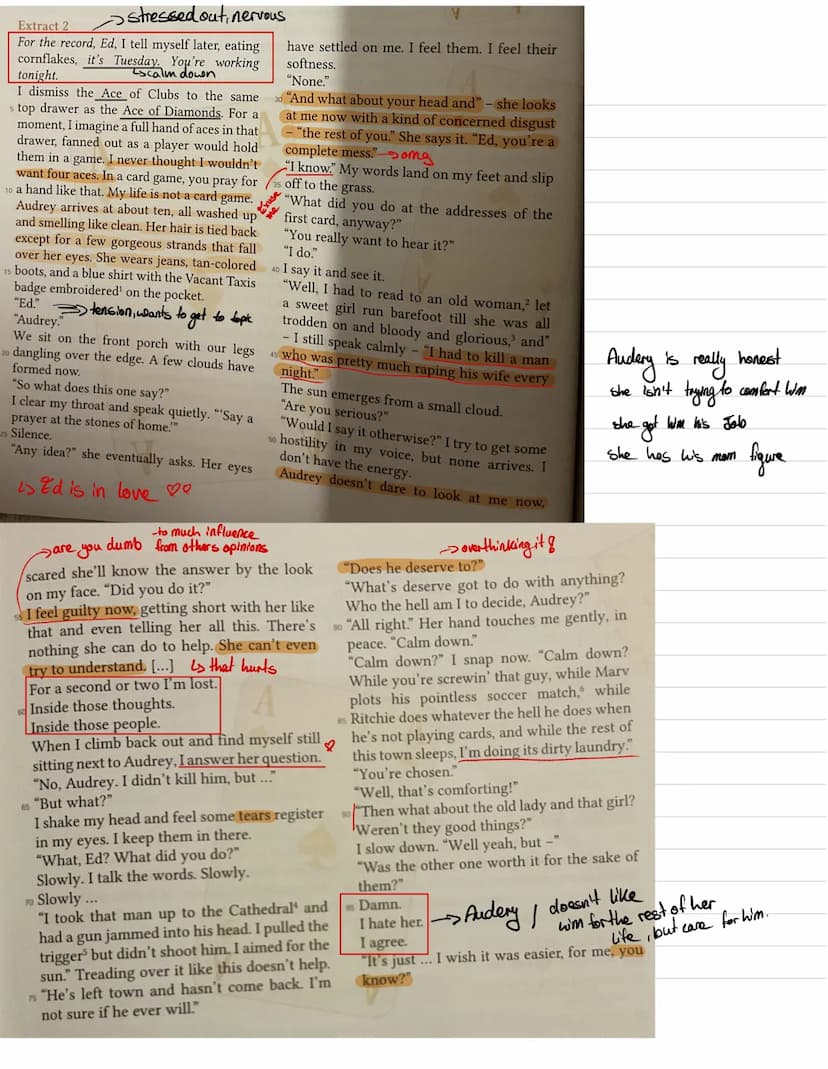 → stressed out, nervous
Extract 2
For the record, Ed, I tell myself later, eating
cornflakes, it's Tuesday. You're working
tonight.
↳ calm down
I dismiss the Ace of Clubs to the same
5 top drawer as the Ace of Diamonds. For a
moment, I imagine a full hand of aces in that
drawer, fanned out as a player would hold
them in a game. I never thought I wouldn't
want four aces. In a card game, you pray for
10 a hand like that. My life is not a card game.
Audrey arrives at about ten, all washed up
and smelling like clean. Her hair is tied back
except for a few gorgeous strands that fall
over her eyes. She wears jeans, tan-colored
15 boots, and a blue shirt with the Vacant Taxis
badge embroidered¹ on the pocket.
"Ed."
"Audrey."
⇒ tension, wants to get to topic
We sit on the front porch with our legs
20 dangling over the edge. A few clouds have
formed now.
"So what does this one say?"
I clear my throat and speak quietly. "'Say a
prayer at the stones of home.'"
25 Silence.
"Any idea?" she eventually asks. Her eyes
↳ Ed is in love ♡♡
have settled on me. I feel them. I feel their
softness.
"None."
30 "And what about your head and" – she looks
at me now with a kind of concerned disgust
– "the rest of you." She says it. "Ed, you're a
complete mess."
→ omg
"I know." My words land on my feet and slip
35 off to the grass.
"What did you do at the addresses of the
first card, anyway?"
"You really want to hear it?"
"I do."
40 I say it and see it.
"Well, I had to read to an old woman,² let
a sweet girl run barefoot till she was all
trodden on and bloody and glorious,³ and"
– I still speak calmly – "I had to kill a man
45 who was pretty much raping his wife every
night."
The sun emerges from a small cloud.
"Are you serious?"
"Would I say it otherwise?" I try to get some
50 hostility in my voice, but none arrives. I
don't have the energy.
Audrey doesn't dare to look at me now,
Audery is really honest
she isn't trying to comfort him
she got him his Job
she has his mom figure
→ are you dumb
-to much influence
from others opinions
scared she'll know the answer by the look
on my face. "Did you do it?"
55 I feel guilty now, getting short with her like
that and even telling her all this. There's
nothing she can do to help. She can't even
try to understand. [...]
↳ that hurts
For a second or two I'm lost.
60 Inside those thoughts.
Inside those people.
When I climb back out and find myself still
sitting next to Audrey, I answer her question.
♡
"No, Audrey. I didn't kill him, but ..."
65 "But what?"
I shake my head and feel some tears register
in my eyes. I keep them in there.
"What, Ed? What did you do?"
Slowly. I talk the words. Slowly.
70 Slowly ...
"I took that man up to the Cathedral⁴ and
had a gun jammed into his head. I pulled the
trigger⁵ but didn't shoot him. I aimed for the
sun." Treading over it like this doesn't help.
75 "He's left town and hasn't come back. I'm
not sure if he ever will."
→ overthinking it
"Does he deserve to?"
"What's deserve got to do with anything?
Who the hell am I to decide, Audrey?"
80 "All right." Her hand touches me gently, in
peace. "Calm down."
"Calm down?" I snap now. "Calm down?
While you're screwin' that guy, while Marv
plots his pointless soccer match,⁶ while
85 Ritchie does whatever the hell he does when
he's not playing cards, and while the rest of
this town sleeps, I'm doing its dirty laundry."
"You're chosen."
"Well, that's comforting!"
90 "Then what about the old lady and that girl?
Weren't they good things?"
I slow down. "Well yeah, but –"
"Was the other one worth it for the sake of
them?"
95 Damn.
I hate her.
I agree.
→ Audery / doesn't like
him for the rest of her
life, but care for him.
"It's just ... I wish it was easier, for me, you
know?"